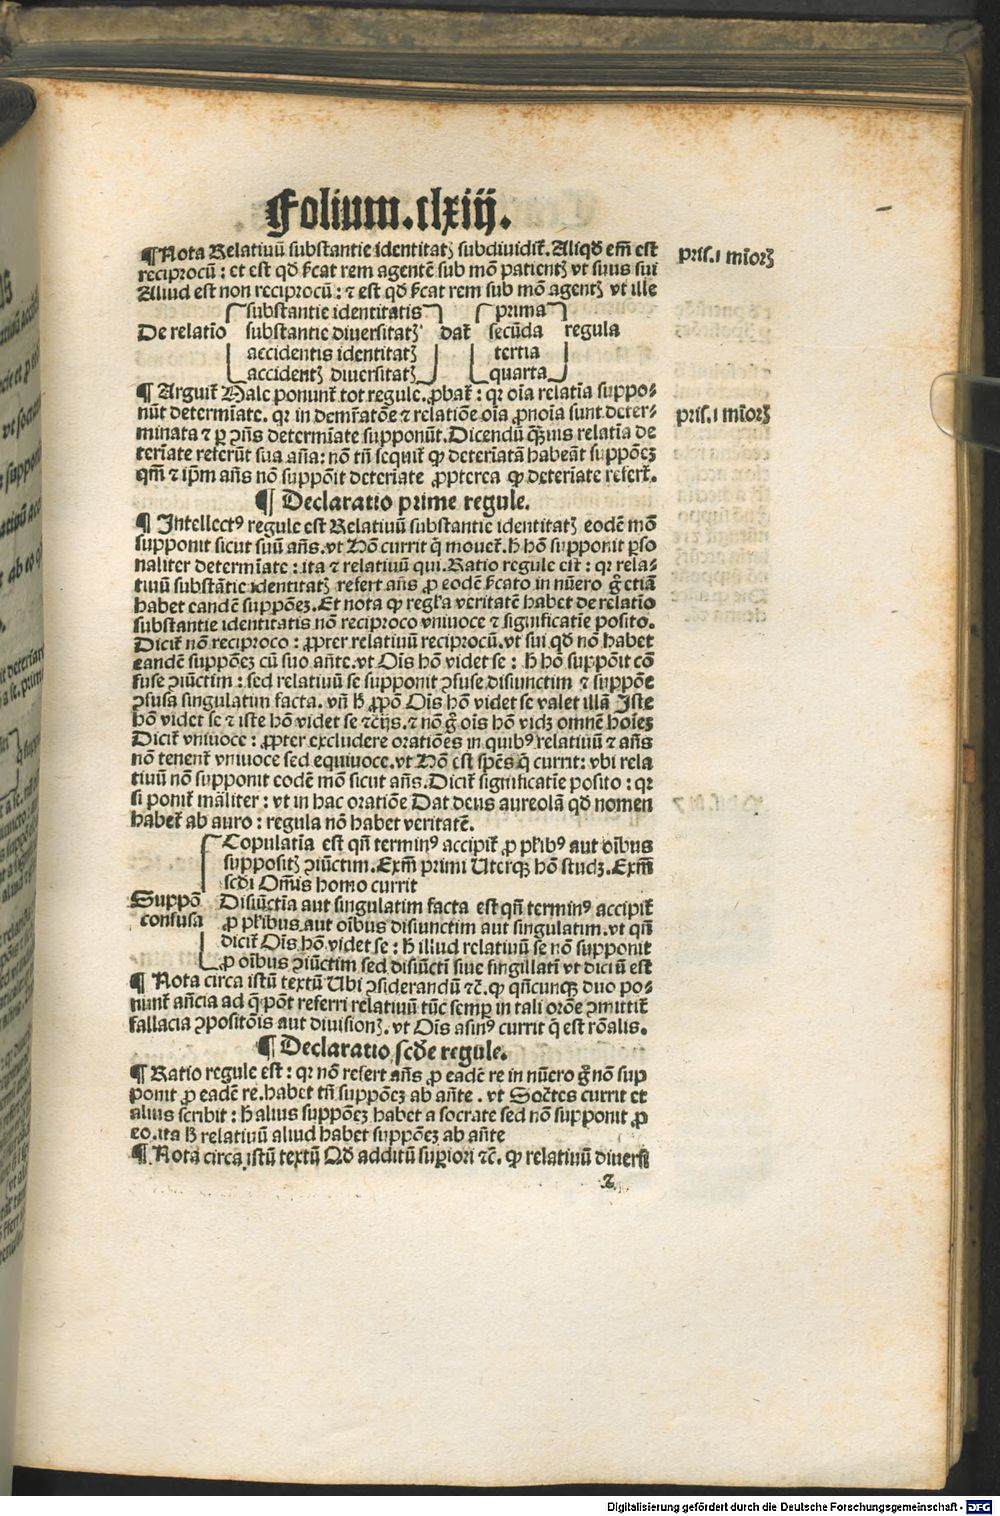 Folium.clxiij.
¶Nota Relatiuū substantie identitatꝭ subdiuidiť. Aliqđ em̄ est
reciprocū: et est qđ ſ̄cat rem agentē sub mō patientꝭ vt suus sui
Aliud est non reciprocū: ⁊ est qđ ſ̄cat rem sub mō agentꝭ vt ille
pris. i mīorꝫ
substantie identitatis prima
De relatīo substantie diuersitatꝭ dať secūda regula
accidentis identitatꝭ tertia
accidentꝭ diuersitatꝭ quarta
¶ Arguiť Male ponunť tot regule. ꝓbať: qꝛ oīa relatīa suppo-
nūt determīate. qꝛ in demr̄atōe ⁊ relatiōe oīa ꝓnoīa sunt deter-
pris. i mīorꝫ
minata ⁊ ꝑ ꝯn̄s determīate supponūt. Dicendū qꝫuis relatīa de
terīate referūt sua an̄a: nō tn̄ sequiť ꝙ deterīatā habeāt suppōeꝫ
qm̄ ⁊ ip̄m an̄s nō suppōit deterīate ꝓpterea ꝙ deterīate referť.
¶ Declaratio prime regule.
¶ Intellectꝰ regule est Relatiuū substantie identitatꝭ eodē mō
supponit sicut suū an̄s. vt Hō currit q̄ moueť. ħ hō supponit ꝑso
naliter determīate: ita ⁊ relatiuū qui. Ratio regule eīt: qꝛ rela-
tiuū substātie identitatꝭ refert an̄s ꝓ eodē ſ̄cato in nūero g̊ etiā
habet eandē suppōeꝫ. Et nota ꝙ regl̄a veritatē habet de relatio
substantie identitatis nō reciproco vniuoce ⁊ significatie posito.
Diciť nō reciproco: ꝓpter relatiuū reciprocū. vt sui qđ nō habet
eandē suppōeꝫ cū suo an̄te. vt Oīs hō videt se: ħ hō suppōit cō
fuse ꝯiūctim: sed relatiuū se supponit ꝯfuse disiunctim ⁊ suppōe
ꝯfusa singulatim facta. vn̄ ħ ꝓpō Oīs hō videt se valet illā Iste
hō videt se ⁊ iste hō videt se ⁊c̄ijs. ⁊ nō g̊ oīs hō vidꝫ omnē hoīeꝫ
Diciť vniuoce: ꝓpter excludere oratiōes in quibꝰ relatiuū ⁊ an̄s
nō tenenť vniuoce sed equiuoce. vt Hō est sp̄es q̄ currit: vbi rela
tiuū nō supponit eodē mō sicut an̄s. Diciť significatīe posito: qꝛ
si poniť māliter: vt in hac oratiōe Dat deus aureolā qđ nomen
habeť ab auro: regula nō habet veritatē.
Copulatīa est qn̄ terminꝰ accipiť ꝓ pl̄ibꝰ aut oībus
suppositꝭ ꝯiūctim. Exm̄ primi Uterqꝫ hō studꝫ. Exm̄
scđi Om̄is homo currit
Suppō Disiūctīa aut singulatim facta est qn̄ terminꝰ accipiť
confusa ꝓ pl̄ibus aut oībus disiunctim aut singulatim. vt qn̄
diciť Oīs hō videt se: ħ illud relatiuū se nō supponit
ꝓ oībus ꝯiūctim sed disiūctī siue singillatī vt dictū est
¶ Nota circa istū textū Ubi ꝯsiderandū ⁊c̄. ꝙ qn̄cunqꝫ duo po-
nunť an̄cia ad q̄ pōt referri relatiuū tūc semꝑ in tali orōe ꝯmittiť
fallacia ꝯpositōis aut diuisionꝭ. vt Oīs asinꝰ currit q̄ est rōalis.
¶ Declaratio scđe regule.
¶ Ratio regule est: qꝛ nō refert an̄s ꝓ eadē re in nūero g̊ nō sup
ponit ꝓ eadē re. habet tn̄ suppōeꝫ ab an̄te. vt Soc̄tes currit et
alius scribit: ħ alius suppōeꝫ habet a socrate sed nō supponit ꝓ
eo. ita ħ relatiuū aliud habet suppōeꝫ ab an̄te
¶ Nota circa istū textū Qđ additū suꝑiori ⁊c̄. ꝙ relatiuū diuersi
Digitalisierung gefördert durch die Deutsche Forschungsgemeinschaft - DFG